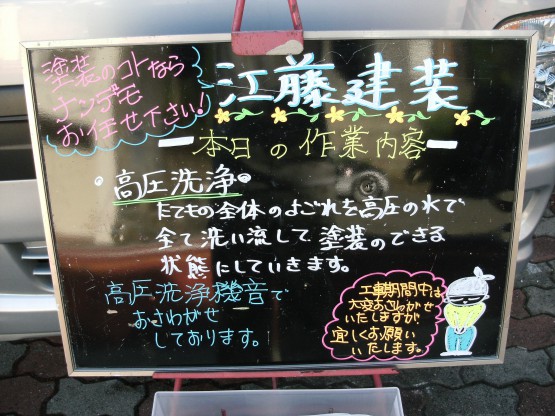 塗装のコトなら
ナンデモ
お任せ下さい!
江藤建装
本日の作業内容
・高圧洗浄・
たてもの全体のよごれを高圧の水で
全て洗い流して塗装のできる
状態にしていきます。
高圧洗浄機音で
おさわがせ
しております。!
工事期間中は
大変おさわがせ
いたしますが
宜しくお願い
いたします。